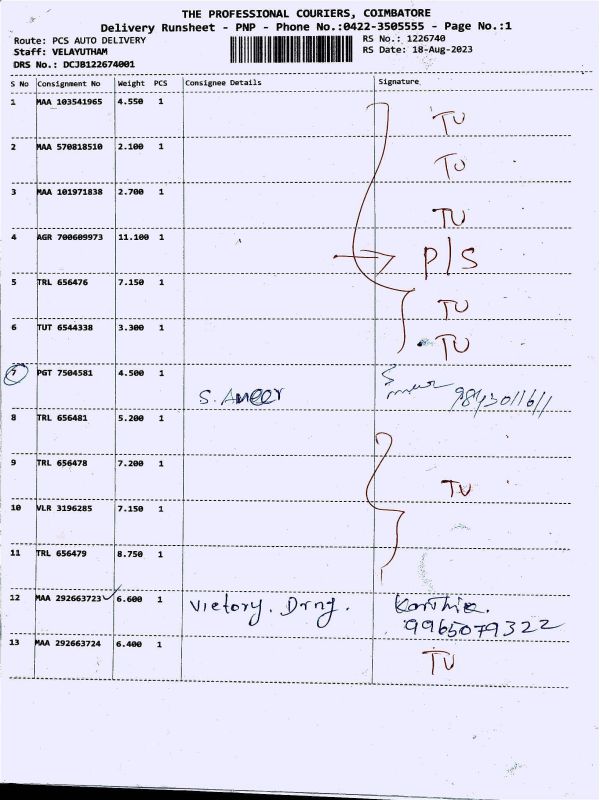 THE PROFESSIONAL COURIERS, COIMBATORE
Delivery Runsheet - PNP - Phone No.:0422-3505555 - Page No.:1
Route: PCS AUTO DELIVERY RS No.: 1226740
Staff: VELAYUTHAM RS Date: 18-Aug-2023
DRS No.: DCJB122674001
S No Consignment No Weight PCS Consignee Details Signature
1 MAA 103541965 4.550 1 TU
2 MAA 570818510 2.100 1 TU
3 MAA 101971838 2.700 1 TU
4 AGR 700609973 11.100 1 P/S
5 TRL 656476 7.150 1 TU
6 TUT 6544338 3.300 1 TU
7 PGT 7504581 4.500 1 S. Ameer 9843011611
8 TRL 656481 5.200 1
9 TRL 656478 7.200 1 TU
10 VLR 3196285 7.150 1
11 TRL 656479 8.750 1
12 MAA 292663723 6.600 1 Victory. Drng. Karthik.
9965079322
13 MAA 292663724 6.400 1 TU